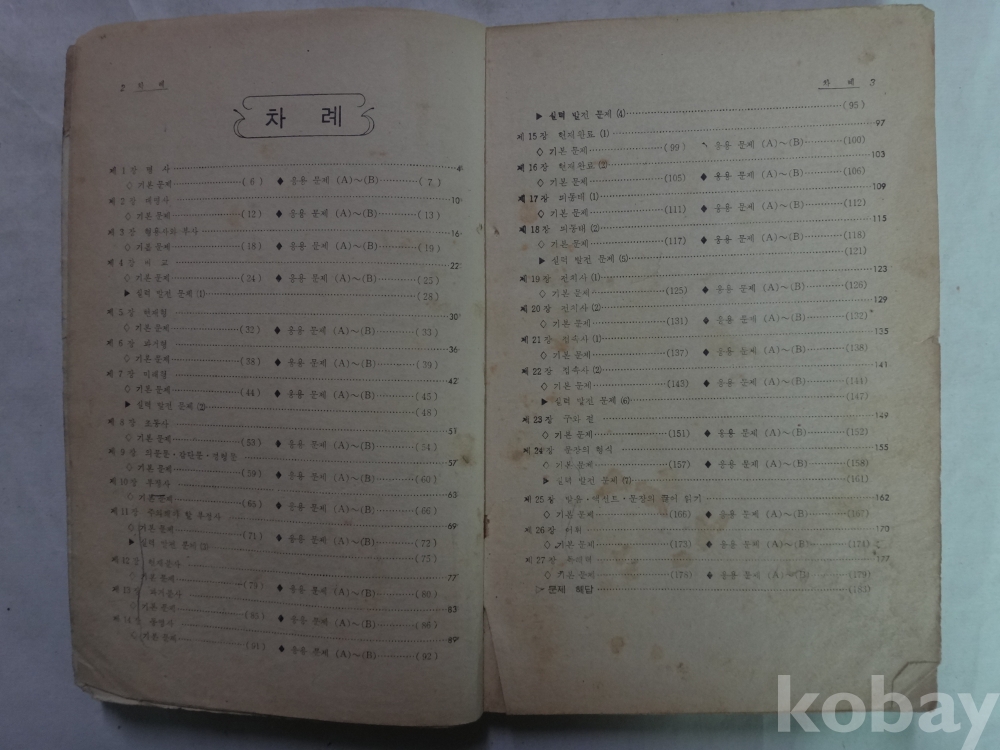 2 차 례
차 례
제 1 장 명 사 4
◇ 기본 문제 ( 6 ) ◆ 응용 문제 (A)~(B) ( 7 )
제 2 장 대명사 10
◇ 기본 문제 (12) ◆ 응용 문제 (A)~(B) (13)
제 3 장 형용사와 부사 16
◇ 기본 문제 (18) ◆ 응용 문제 (A)~(B) (19)
제 4 장 비 교 22
◇ 기본 문제 (24) ◆ 응용 문제 (A)~(B) (25)
▶ 실력 발전 문제 (1) (28)
제 5 장 현재형 30
◇ 기본 문제 (32) ◆ 응용 문제 (A)~(B) (33)
제 6 장 과거형 36
◇ 기본 문제 (38) ◆ 응용 문제 (A)~(B) (39)
제 7 장 미래형 42
◇ 기본 문제 (44) ◆ 응용 문제 (A)~(B) (45)
▶ 실력 발전 문제 (2) (48)
제 8 장 조동사 51
◇ 기본 문제 (53) ◆ 응용 문제 (A)~(B) (54)
제 9 장 의문문·감탄문·명령문 57
◇ 기본 문제 (59) ◆ 응용 문제 (A)~(B) (60)
제10장 부정사 63
◇ 기본 문제 (65) ◆ 응용 문제 (A)~(B) (66)
제11장 주의해야 할 부정사 69
◇ 기본 문제 (71) ◆ 응용 문제 (A)~(B) (72)
▶ 실력 발전 문제 (3) (75)
제12장 현재분사 77
◇ 기본 문제 (79) ◆ 응용 문제 (A)~(B) (80)
제13장 과거분사 83
◇ 기본 문제 (85) ◆ 응용 문제 (A)~(B) (86)
제14장 동명사 89
◇ 기본 문제 (91) ◆ 응용 문제 (A)~(B) (92)
차 례 3
▶ 실력 발전 문제 (4) (95)
제 15 장 현재완료 (1) 97
◇ 기본 문제 (99) 응용 문제 (A)~(B) (100)
제 16 장 현재완료 (2) 103
◇ 기본 문제 (105) ◆ 응용 문제 (A)~(B) (106)
제 17 장 피동태 (1) 109
◇ 기본 문제 (111) ◆ 응용 문제 (A)~(B) (112)
제 18 장 피동태 (2) 115
◇ 기본 문제 (117) ◆ 응용 문제 (A)~(B) (118)
▶ 실력 발전 문제 (5) (121)
제 19 장 전치사 (1) 123
◇ 기본 문제 (125) ◆ 응용 문제 (A)~(B) (126)
제 20 장 전치사 (2) 129
◇ 기본 문제 (131) ◆ 응용 문제 (A)~(B) (132)
제 21 장 접속사 (1) 135
◇ 기본 문제 (137) ◆ 응용 문제 (A)~(B) (138)
제 22 장 접속사 (2) 141
◇ 기본 문제 (143) ◆ 응용 문제 (A)~(B) (144)
▶ 실력 발전 문제 (6) (147)
제 23 장 구와 절 149
◇ 기본 문제 (151) ◆ 응용 문제 (A)~(B) (152)
제 24 장 문장의 형식 155
◇ 기본 문제 (157) ◆ 응용 문제 (A)~(B) (158)
▶ 실력 발전 문제 (7) (161)
제 25 장 발음·액센트·문장의 끊어 읽기 162
◇ 기본 문제 (166) ◆ 응용 문제 (A)~(B) (167)
제 26 장 어휘 170
◇ 기본 문제 (173) ◆ 응용 문제 (A)~(B) (174)
제 27 장 독해력 177
◇ 기본 문제 (178) ◆ 응용 문제 (A)~(B) (179)
▷ 문제 해답 (183)
kobay